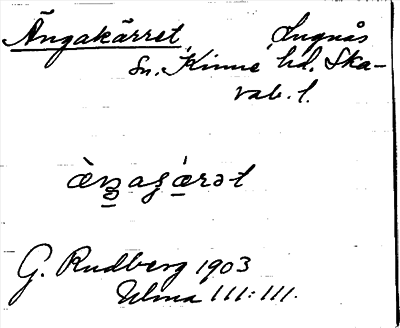 Ängakärret, Lugnås
Sn. Kinne hd. Ska-
rab. l.
G. Rudberg 1903
Ulma 111:111.